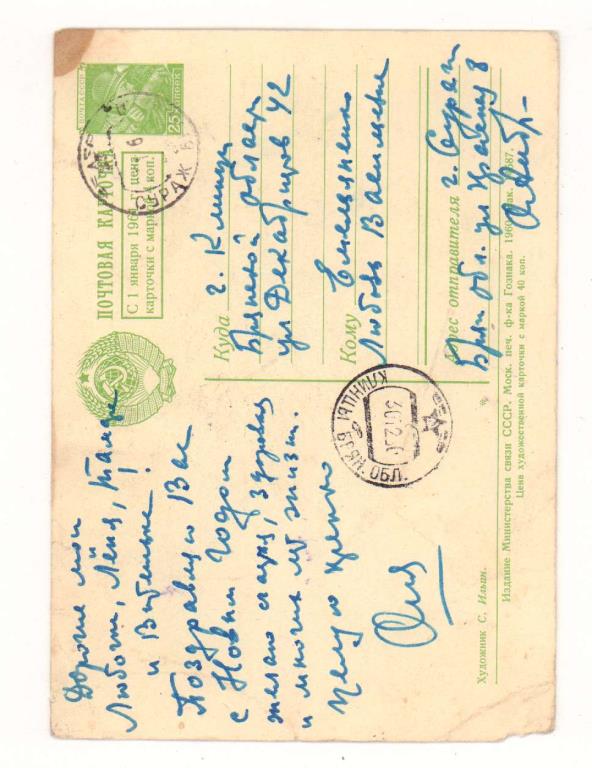 ПОЧТА СССР
25 КОПЕЕК
СУРАЖ
ПОЧТОВАЯ КАРТОЧКА
С 1 января 1961 г. цена
карточки с маркой 4 коп.
Куда г. Клинцы
Брянской области
ул Декабристов 42
Кому Емельяненко
Любовь Васильевне
Адрес отправителя г. Сураж
Брян обл. ул
КЛИНЦЫ БРЯНСК. ОБЛ.
Дорогие мои
Любочка, Лёня, Тамара
и Витенька!
Поздравляю Вас
с Новым годом
желаю счастья, здоровья
и многих лет жизни.
Целую крепко
Оля
Художник С. Ильин.
Издание Министерства связи СССР. Моск. печ. ф-ка Гознака. 1960. Зак. 687.
Цена художественной карточки с маркой 40 коп.